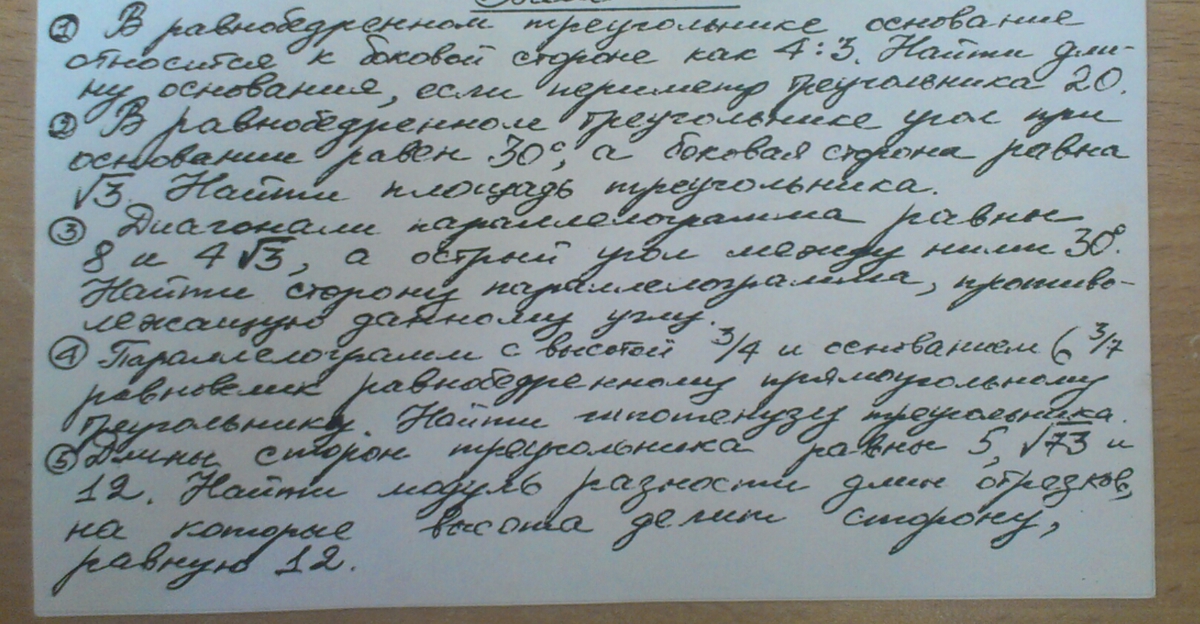 ① В равнобедренном треугольнике основание
относится к боковой стороне как 4:3. Найти дли-
ну основания, если периметр треугольника 20.
② В равнобедренном треугольнике угол при
основании равен 30°, а боковая сторона равна
√3. Найти площадь треугольника.
③ Диагонали параллелограмма равны
8 и 4√3, а острый угол между ними 30°.
Найти сторону параллелограмма, противо-
лежащую данному углу.
④ Параллелограмм с высотой 3/4 и основанием 6 3/7
равновелик равнобедренному прямоугольному
треугольнику. Найти гипотенузу треугольника.
⑤ Длины сторон треугольника равны 5, √73 и
12. Найти модуль разности длин отрезков,
на которые высота делит сторону,
равную 12.